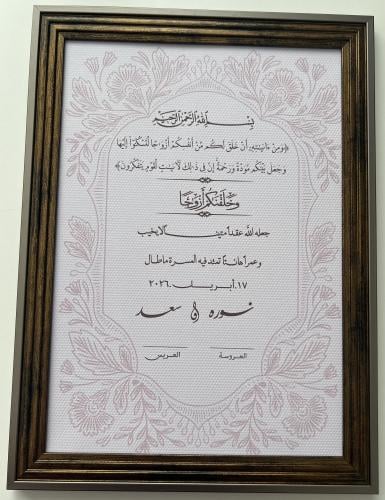 بِسْمِ اللَّهِ الرَّحْمَنِ الرَّحِيمِ
﴿وَمِنْ ءَايَٰتِهِۦٓ أَنْ خَلَقَ لَكُم مِّنْ أَنفُسِكُمْ أَزْوَٰجًا لِّتَسْكُنُوٓا۟ إِلَيْهَا
وَجَعَلَ بَيْنَكُم مَّوَدَّةً وَرَحْمَةً إِنَّ فِى ذَٰلِكَ لَءَايَٰتٍ لِّقَوْمٍ يَتَفَكَّرُونَ﴾
وَخَلَقْنَاكُمْ أَزْوَاجًا
جعله الله عقداً متيناً لا يخيب
وعمراً هانئاً تمتد فيه المسرة ما طال
١٧. أبريل .٢٠٢٦
نوره & سعد
العروسة العريس